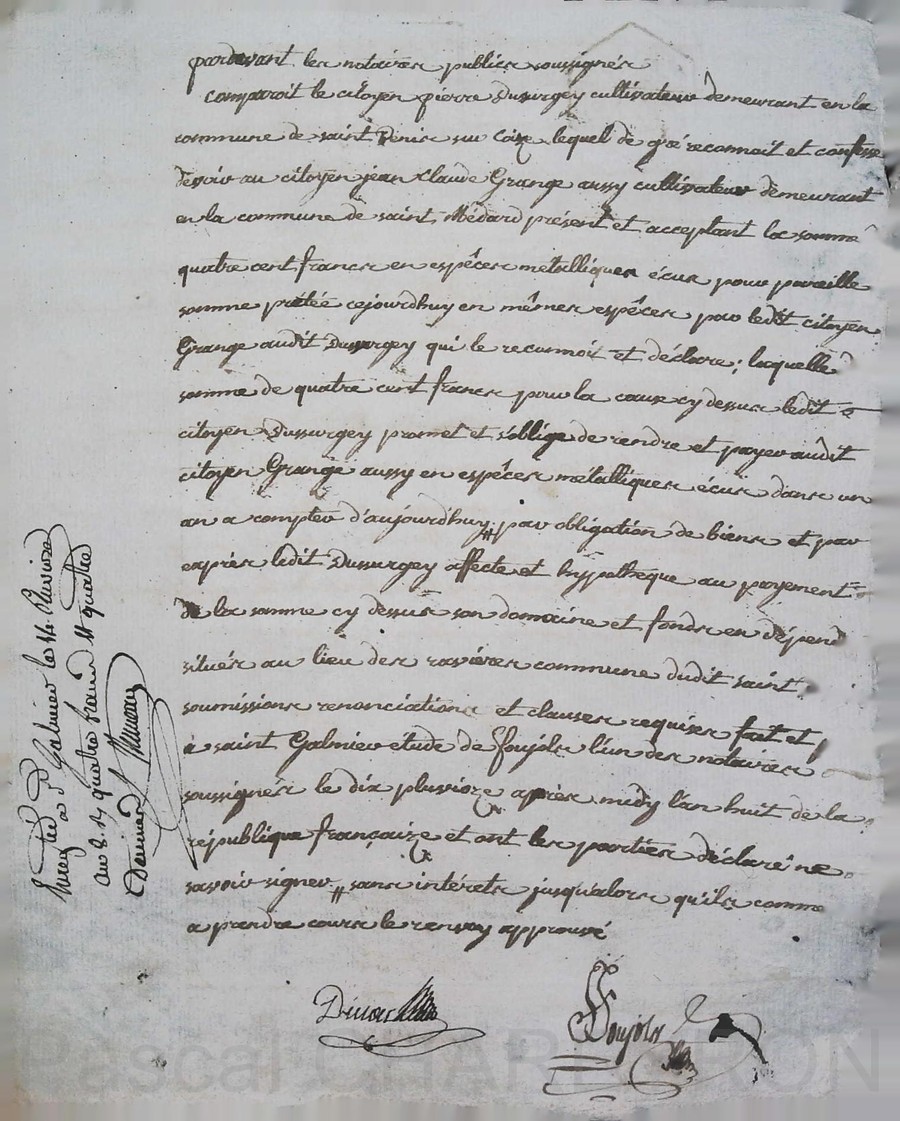 pardevant les notaires publics soussignés
comparoit le citoyen pierre Dussurgey cultivateur demeurant en la
commune de saint Denis sur Coize lequel de gré reconnoit et confesse
devoir au citoyen jean Claude Grange aussy cultivateur demeurant
en la commune de saint Médard présent et acceptant la somme
quatre cent francs en espêces métalliques écus pour pareille
somme prétée cejourdhuy en mêmes espêces par ledit citoyen
Grange audit Dussurgey qui le reconnoit et déclare ; laquelle
somme de quatre cent francs pour la cause cy dessus ledit
citoyen Dussurgey promet et s'oblige de rendre et payer audit
citoyen Grange aussy en espêces métalliques écus dans un
an a compter d'aujourdhuy # par obligation de biens et par
exprès ledit Dussurgey affecte et hypothèque au payement
de la somme cy dessus son domaine et fonds en dépend
situés au lieu des ravières commune dudit saint
soumissions renonciations et clauses requises fait et
à saint Galmier étude de foujols l'un des notaires
soussignés le dix pluvioze après midy l'an huit de la
république françaize et ont les parties déclaré ne
savoir signer # sans intérets jusqualors qu'ils comme
a prendre cours le renvoy approuvé
Enreg. a St Galmier le 14 Pluvioze
an 8. quatre francs quatre
Foujols
Pascal CHAR ON